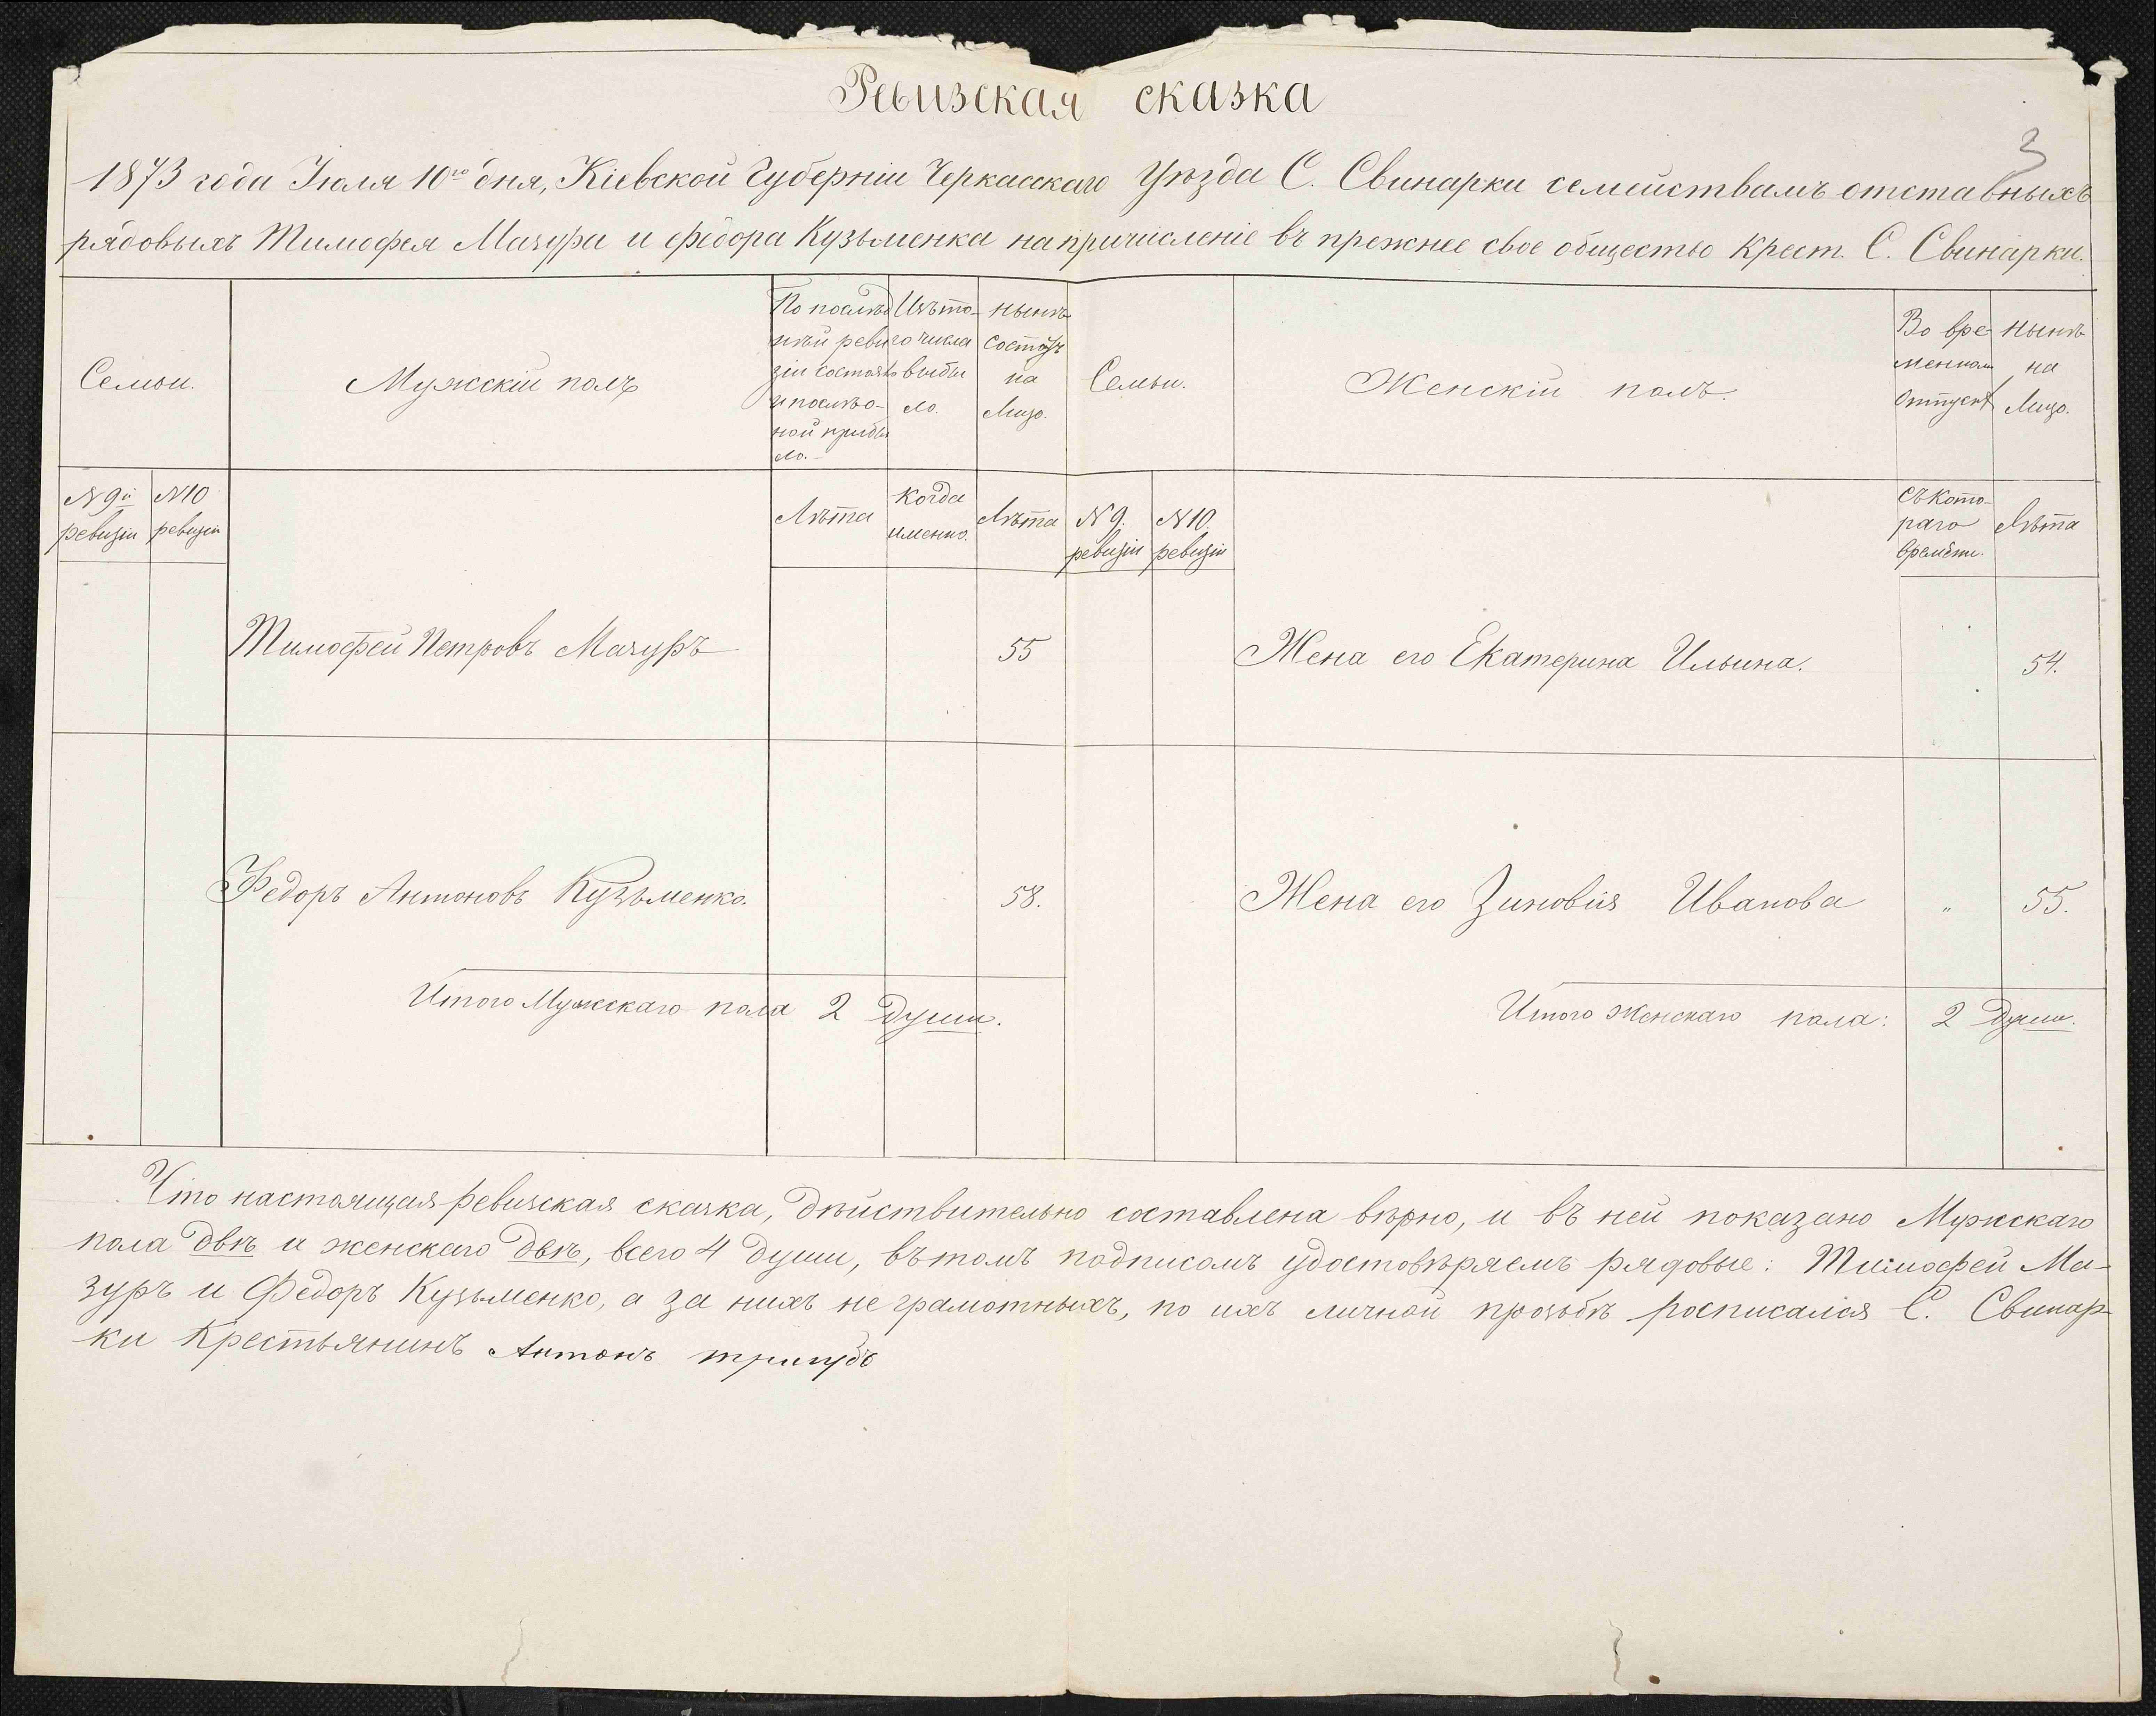 Ревизская сказка
3
1873 года Іюля 10го дня, Кіевской Губерніи Черкасскаго Уѣзда С. Свинарки семействамъ отставныхъ
рядовыхъ Тимофея Мазура и Федора Кузьменка на причисленіе въ прежнее свое общество Крест. С. Свинарки.
Семьи.
Мужскій полъ
По послѣд
нѣй реви
зіи состояло
и послѣ о-
ной прибы
ло.
Изъ то-
го числа
выбы
ло.
нынѣ
состоитъ
на
Лицо.
Семьи.
Женскій полъ.
Во вре
менном
Отпускѣ
нынѣ
на
Лицо.
№ 9й
ревизіи
№ 10
ревизіи
Лѣта
Когда
именно.
Лѣта
№ 9.
ревизіи
№ 10.
ревизіи
Съ кото-
раго
времени.
Лѣта
Тимофей Петровъ Мазуръ
55
Жена его Екатерина Ильина.
54.
Федоръ Антоновъ Кузьменко.
58.
Жена его Зиновія Иванова
"
55.
Итого Мужскаго пола 2 души.
Итого женскаго пола: 2 души.
Что настоящая ревизская сказка, дѣйствительно составлена вѣрно, и въ ней показано Мужскаго
пола двѣ и женскаго двѣ, всего 4 души, въ томъ подписомъ удостовѣряемъ рядовые: Тимофей Ма-
зуръ и Федоръ Кузьменко, а за нихъ не грамотныхъ, по ихъ личной прозьбѣ росписался С. Свинар-
ки Крестьянинъ Антонъ тригубъ